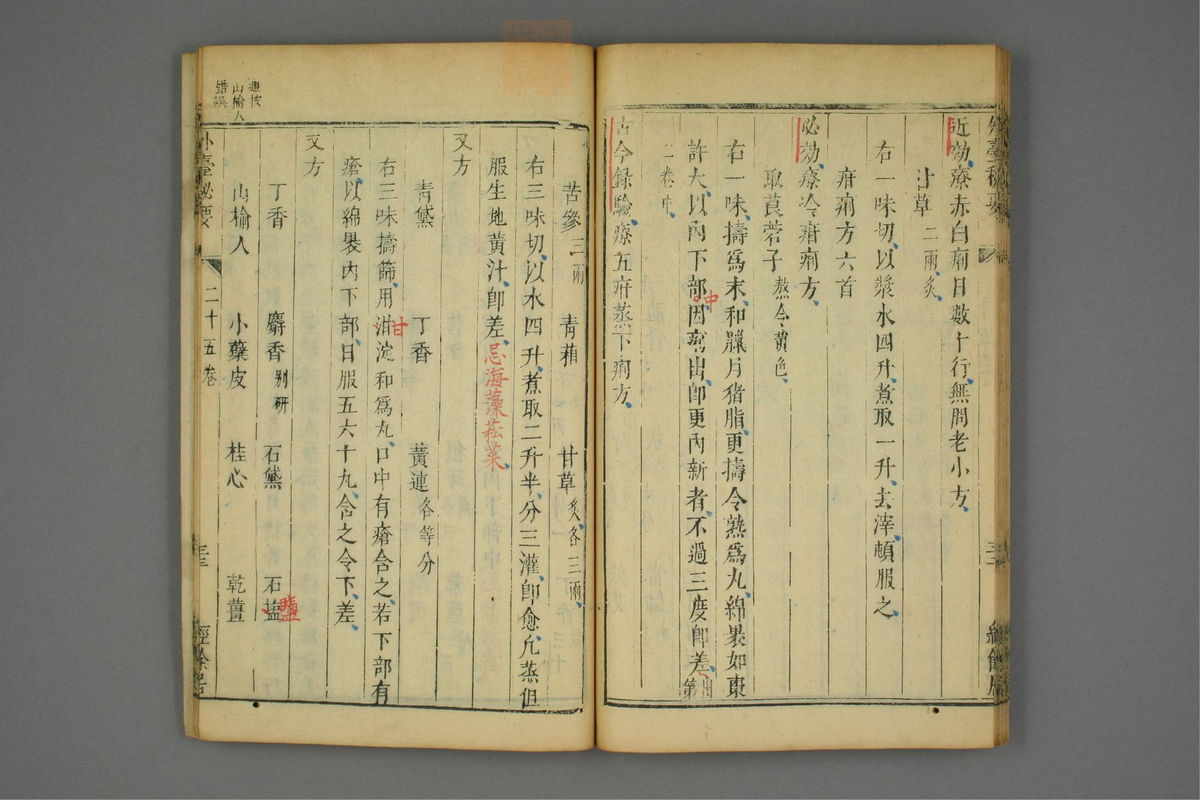 近効療赤白痢日數十行無問老小方
甘草二兩炙
右一味切以漿水四升煮取一升去滓頓服之
疳痢方六首
必効療冷疳痢方
取莨菪子熬令黃色
右一味擣爲末和臘月猪脂更擣令熟爲丸綿裹如棗
許大以內下部中因痢出卽更內新者不過三度卽差出第
二卷中
古今錄驗療五疳蒸下痢方
苦參三兩 青葙 甘草炙各三兩
右三味切以水四升煮取二升半分三灌卽愈凡蒸但
服生地黃汁卽差忌海藻菘菜
又方
青黛 丁香 黃連各等分
右三味擣篩用泔淀和爲丸口中有瘡含之若下部有
甘
瘡以綿裹內下部日服五六十丸含之令下差
又方
丁香 麝香別研 石黛 石塩
鹽
山榆人 小蘗皮 桂心 乾薑
外臺秘要 二十五卷 經餘居
山榆人
錯誤